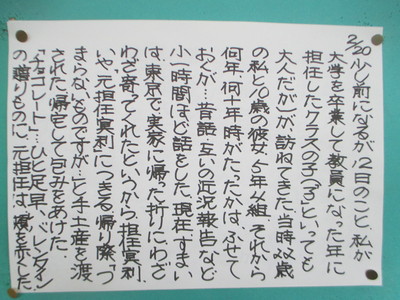 2/20 少し前になるが、12日のこと、私が
大学を卒業して教員になった年に
担任したクラスの子といっても
大人だがが訪ねてきた。当時22歳
の私と10歳の彼女、5年4組。それから
何年、何十年時がたったかは、ふせて
おくが…昔話、互いの近況報告など
小一時間ほど話をした。現在、すまい
は、東京で、実家に帰った折りにわざ
わざ寄ってくれたというから、担任冥利、
いや、元担任冥利につきる。帰り際、「つ
まらないものですが…」と手土産を渡
された。帰宅して包みをあけた。
「チョコレート」…ひと足早い、バレンタイン
の贈りものに、元担任は、頬を赤した。